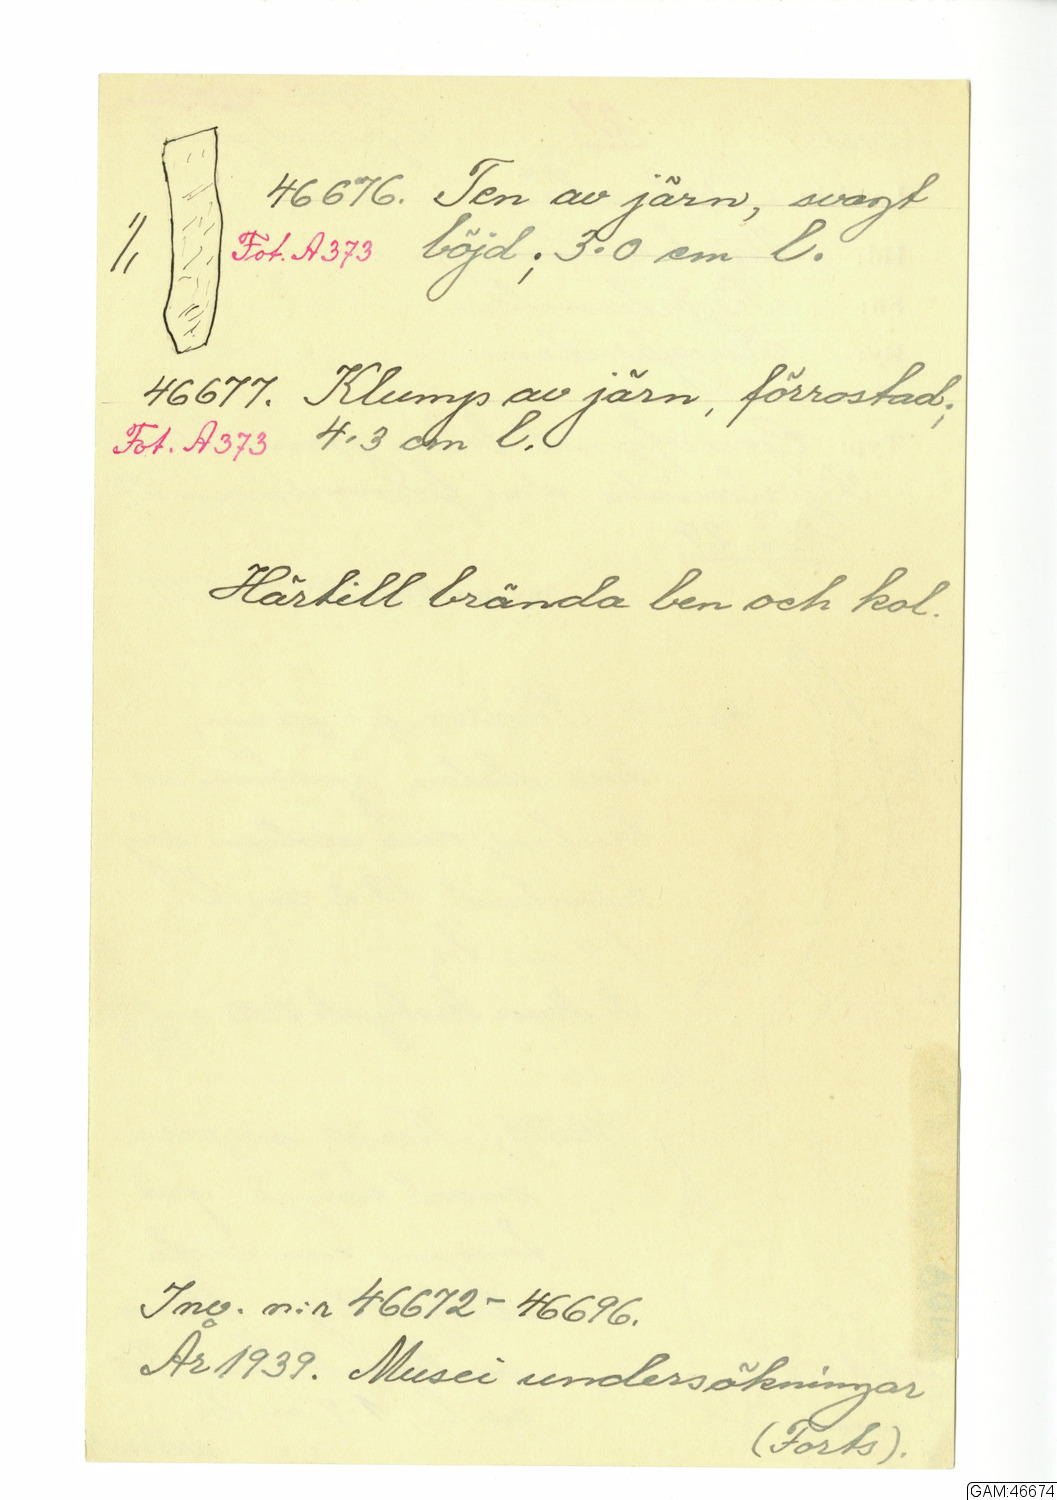 46676. Ten av järn, svagt
1/1 Fot. A373 böjd; 3.0 cm l.
46677. Klump av järn, förrostad;
Fot. A373 4.3 cm l.
Härtill brända ben och kol.
Inv. n:r 46672-46696.
År 1939. Musei undersökningar
(Forts).
GAM:46674